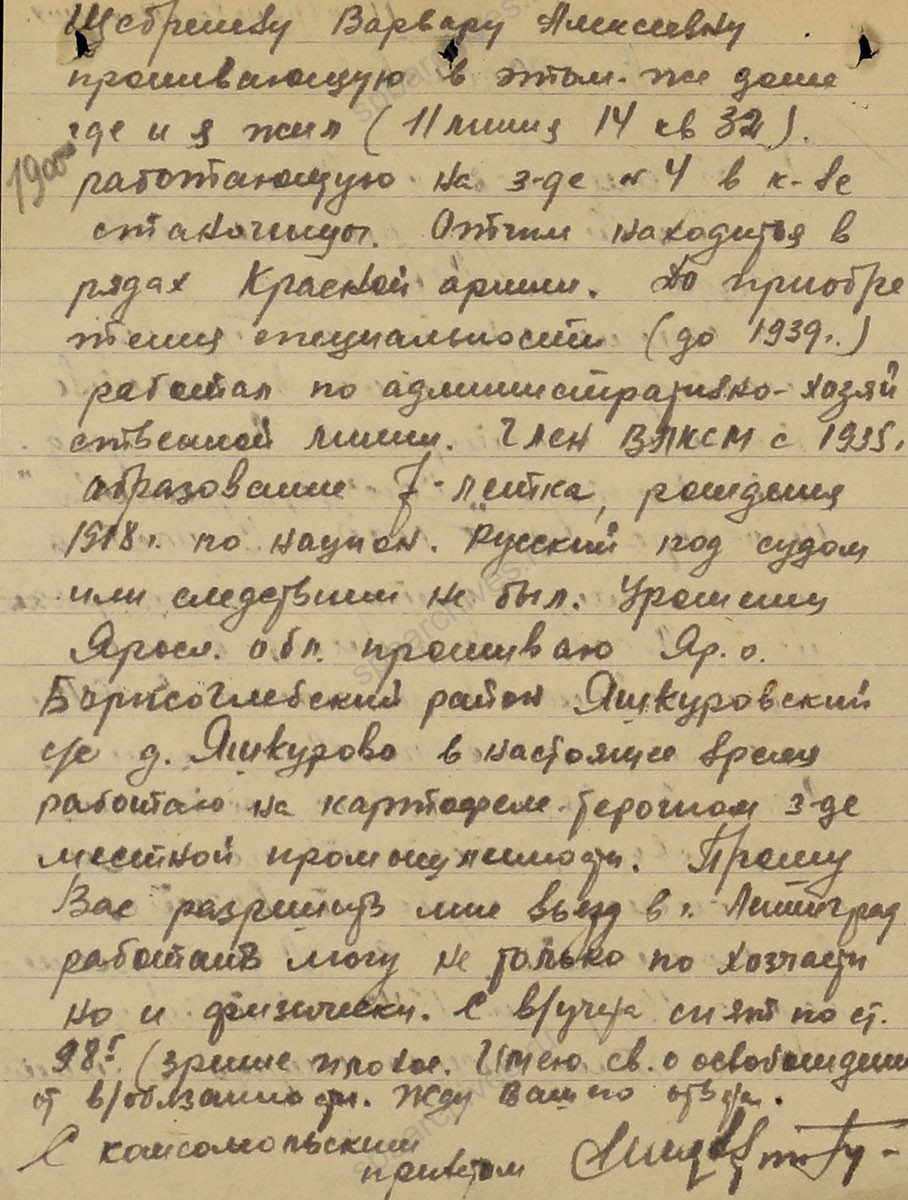 Щебреневу Варвару Алексеевну
проживающую в этом-же доме
где и я жил (11 линия 14 кв 32).
1900
работающую на з-де № 4 в к-ве
станочницы. Отчим находится в
рядах Красной армии. До приобре
тения специальности (до 1939г.)
работал по административно-хозяй
ственной линии. Член ВЛКСМ с 1935г.
образование 7-летка, рождения
1918г. по национ. Русский под судом
или следствием не был. Уроженец
Яросл. обл. проживаю Яр. о.
Борисоглебский район Яшкуровский
с/с д. Яшкурово в настоящее время
работаю на картофеле-терочном з-де
местной промышленности. Прошу
Вас разрешить мне въезд в г. Ленинград
работать могу не только по хозчасти
но и физически. С в/учета снят по ст.
98г (зрение плохое. Имею св. о освобождении
от в/обязанности. Жду Вашего ответа.
С комсомольским
приветом